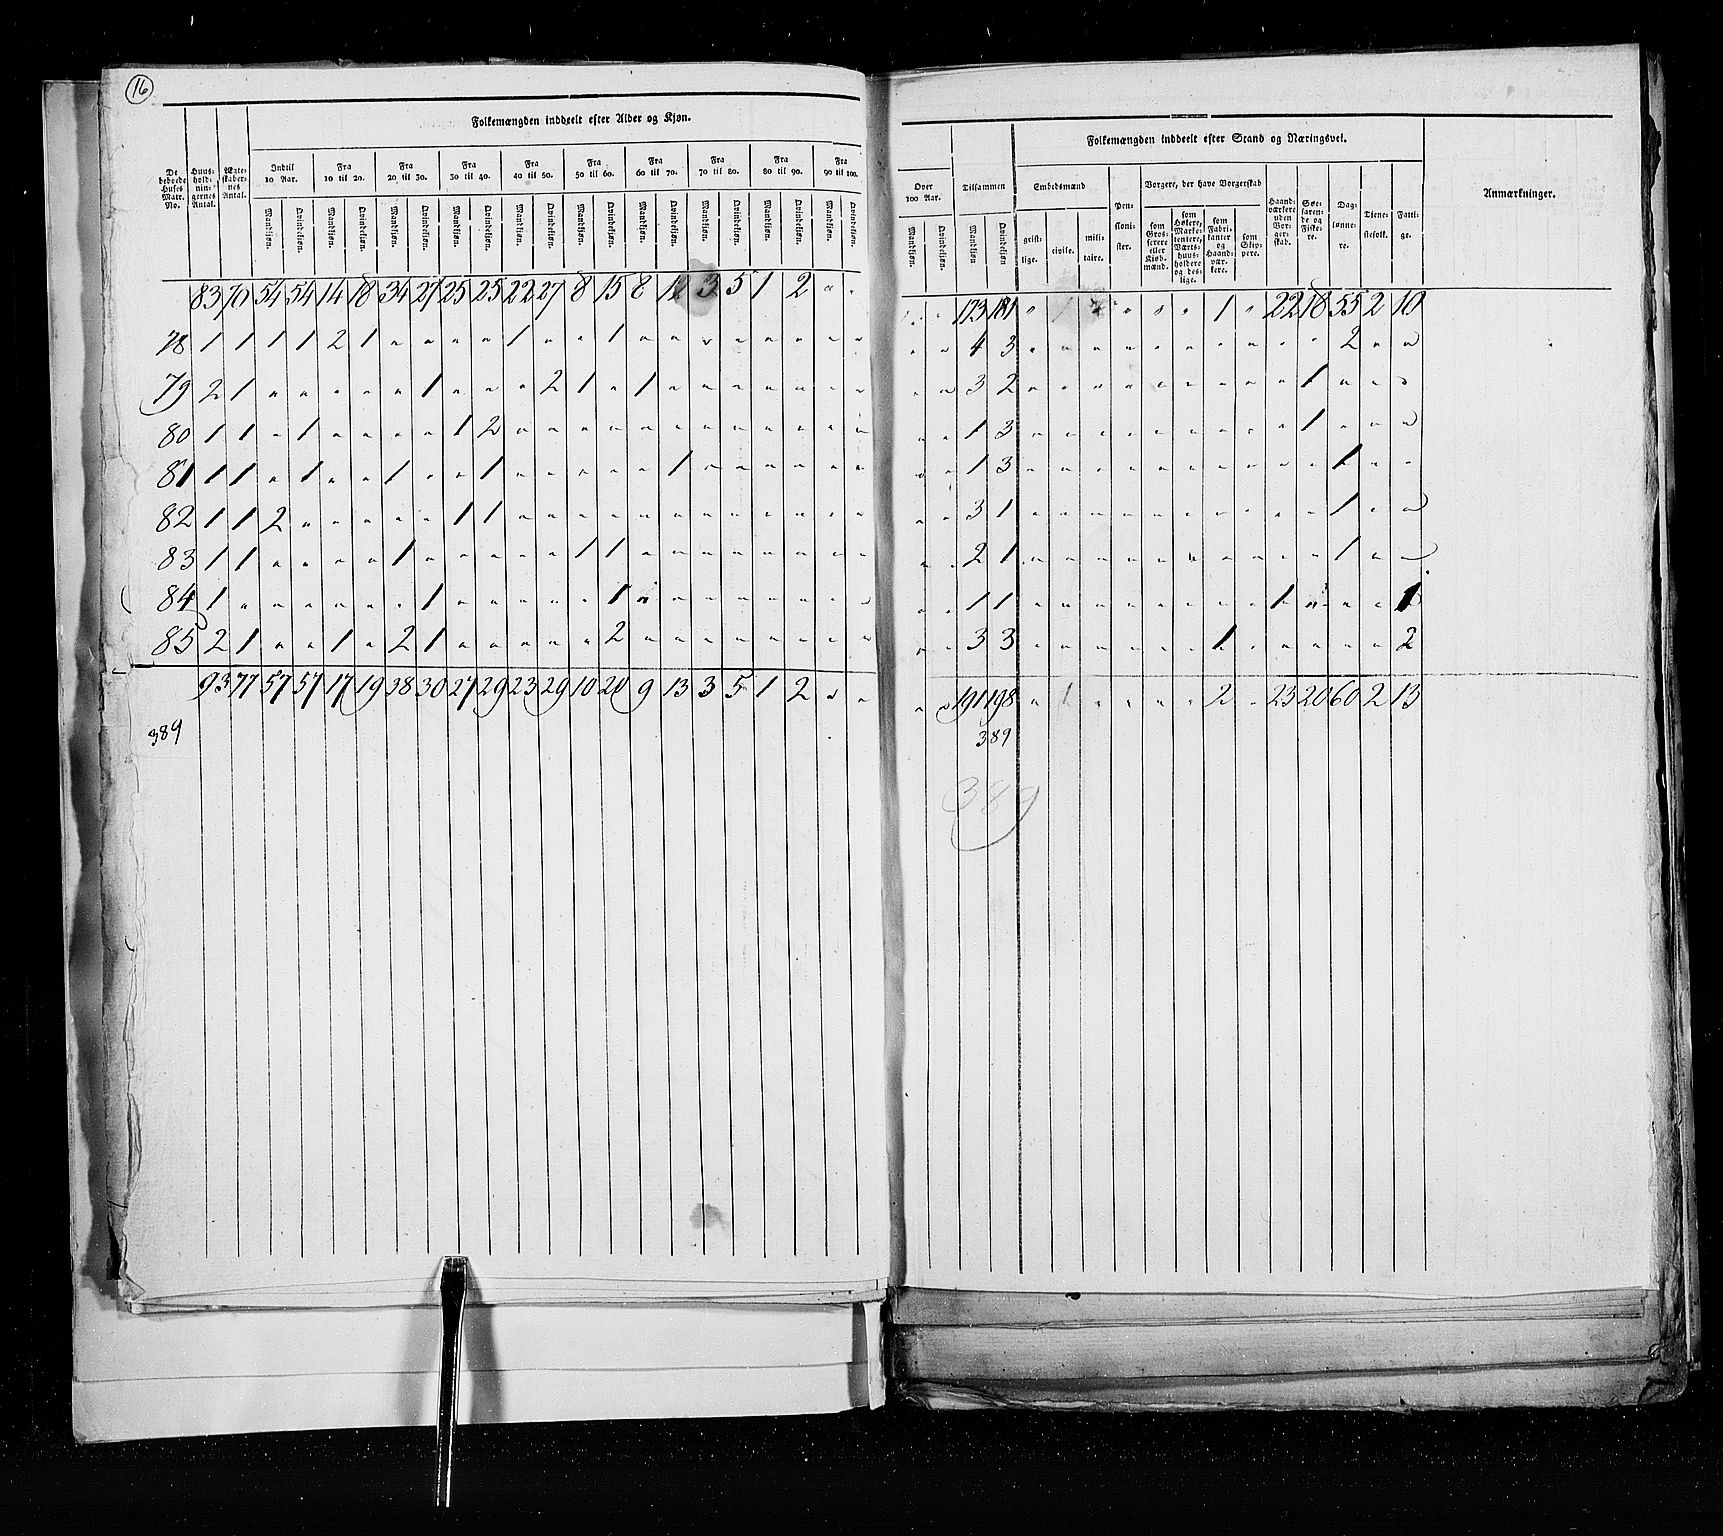 16
Folkemængden inddeelt efter Alder og Kjøn.
De beboede Huses Matr. No. | Huusholdningernes Antal. | Ægteskabernes Antal. | Indtil 10 Aar. | Fra 10 til 20. | Fra 20 til 30. | Fra 30 til 40. | Fra 40 til 50. | Fra 50 til 60. | Fra 60 til 70. | Fra 70 til 80. | Fra 80 til 90. | Fra 90 til 100.
Mandkjøn. Qvindekjøn. Mandkjøn. Qvindekjøn. Mandkjøn. Qvindekjøn. Mandkjøn. Qvindekjøn. Mandkjøn. Qvindekjøn. Mandkjøn. Qvindekjøn. Mandkjøn. Qvindekjøn. Mandkjøn. Qvindekjøn. Mandkjøn. Qvindekjøn. Mandkjøn. Qvindekjøn.
83 70 54 54 14 18 34 27 25 25 22 27 8 15 8 12 3 5 1 2 " "
78 1 1 1 1 2 1 " " " " 1 " " 1 " " " " " " " "
79 2 1 " " " " " 1 " " " 2 1 " 1 " " " " " " "
80 1 1 " 1 " " " " 1 2 " " " " " " " " " " " "
81 1 1 " 1 " " 1 " " 1 " " " " " 1 " " " " " "
82 1 1 2 " " " " " 1 1 " " " " " " " " " " " "
83 1 1 " " " " 1 " " " " " 1 1 " " " " " " " "
84 1 " " " " " " 1 " " " " " 1 " " " " " " " "
85 2 1 " " 1 " 2 1 " " " " " 2 " " " " " " " "
93 77 57 57 17 19 38 30 27 29 23 29 10 20 9 13 3 5 1 2 " "
389
Folkemængden inddeelt efter Stand og Næringsvei.
Over 100 Aar. | Tilsammen | Embedsmænd | Pensionister. | Borgere, der have Borgerskab | Haandværkere uden Borgerskab. | Søefarende og Fiskere. | Daglønnere. | Tjenestefolk. | Fattige. | Anmærkninger.
Mandkjøn. Qvindekjøn. Mandkjøn. Qvindekjøn | geistlige. | civile. | militaire. | som Grosserere eller Kjøbmænd. | som Høkere, Marketentere, Værtshuusholdere og deslige. | som Fabrikanter og Haandværkere. | som Skippere.
" " 173 181 " 1 " " " " 1 " 22 18 55 2 10
" " 4 3 " " " " " " " " " " 2 " "
" " 3 2 " " " " " " " " " 1 " " "
" " 1 3 " " " " " " " " " 1 " " "
" " 1 3 " " " " " " " " " " 1 " "
" " 3 1 " " " " " " " " " " 1 " "
" " 2 1 " " " " " " " " " " 1 " "
" " 1 1 " " " " " " " " 1 " " " 1
" " 3 3 " " " " " " 1 " " " " " 2
" " 191 198 " 1 " " " " 2 " 23 20 60 2 13
389
389